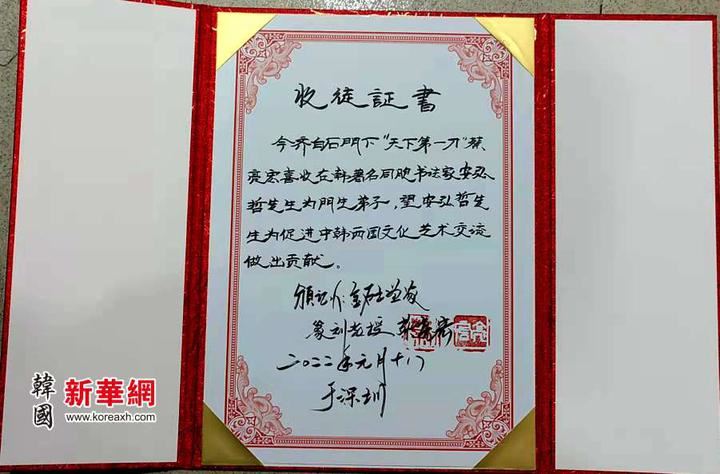 收徒証書
今齐白石門下"天下第一刀"蔡
亮宏喜收在韩著名同胞书法家安弘
哲先生为門生弟子，望安弘哲先
生为促进中韩两国文化艺术交流
做出贡献。
頒记人:金石学友
篆刻老授
二〇二二年元月十八
于深圳
韓國
新華網
www.koreaxh.com